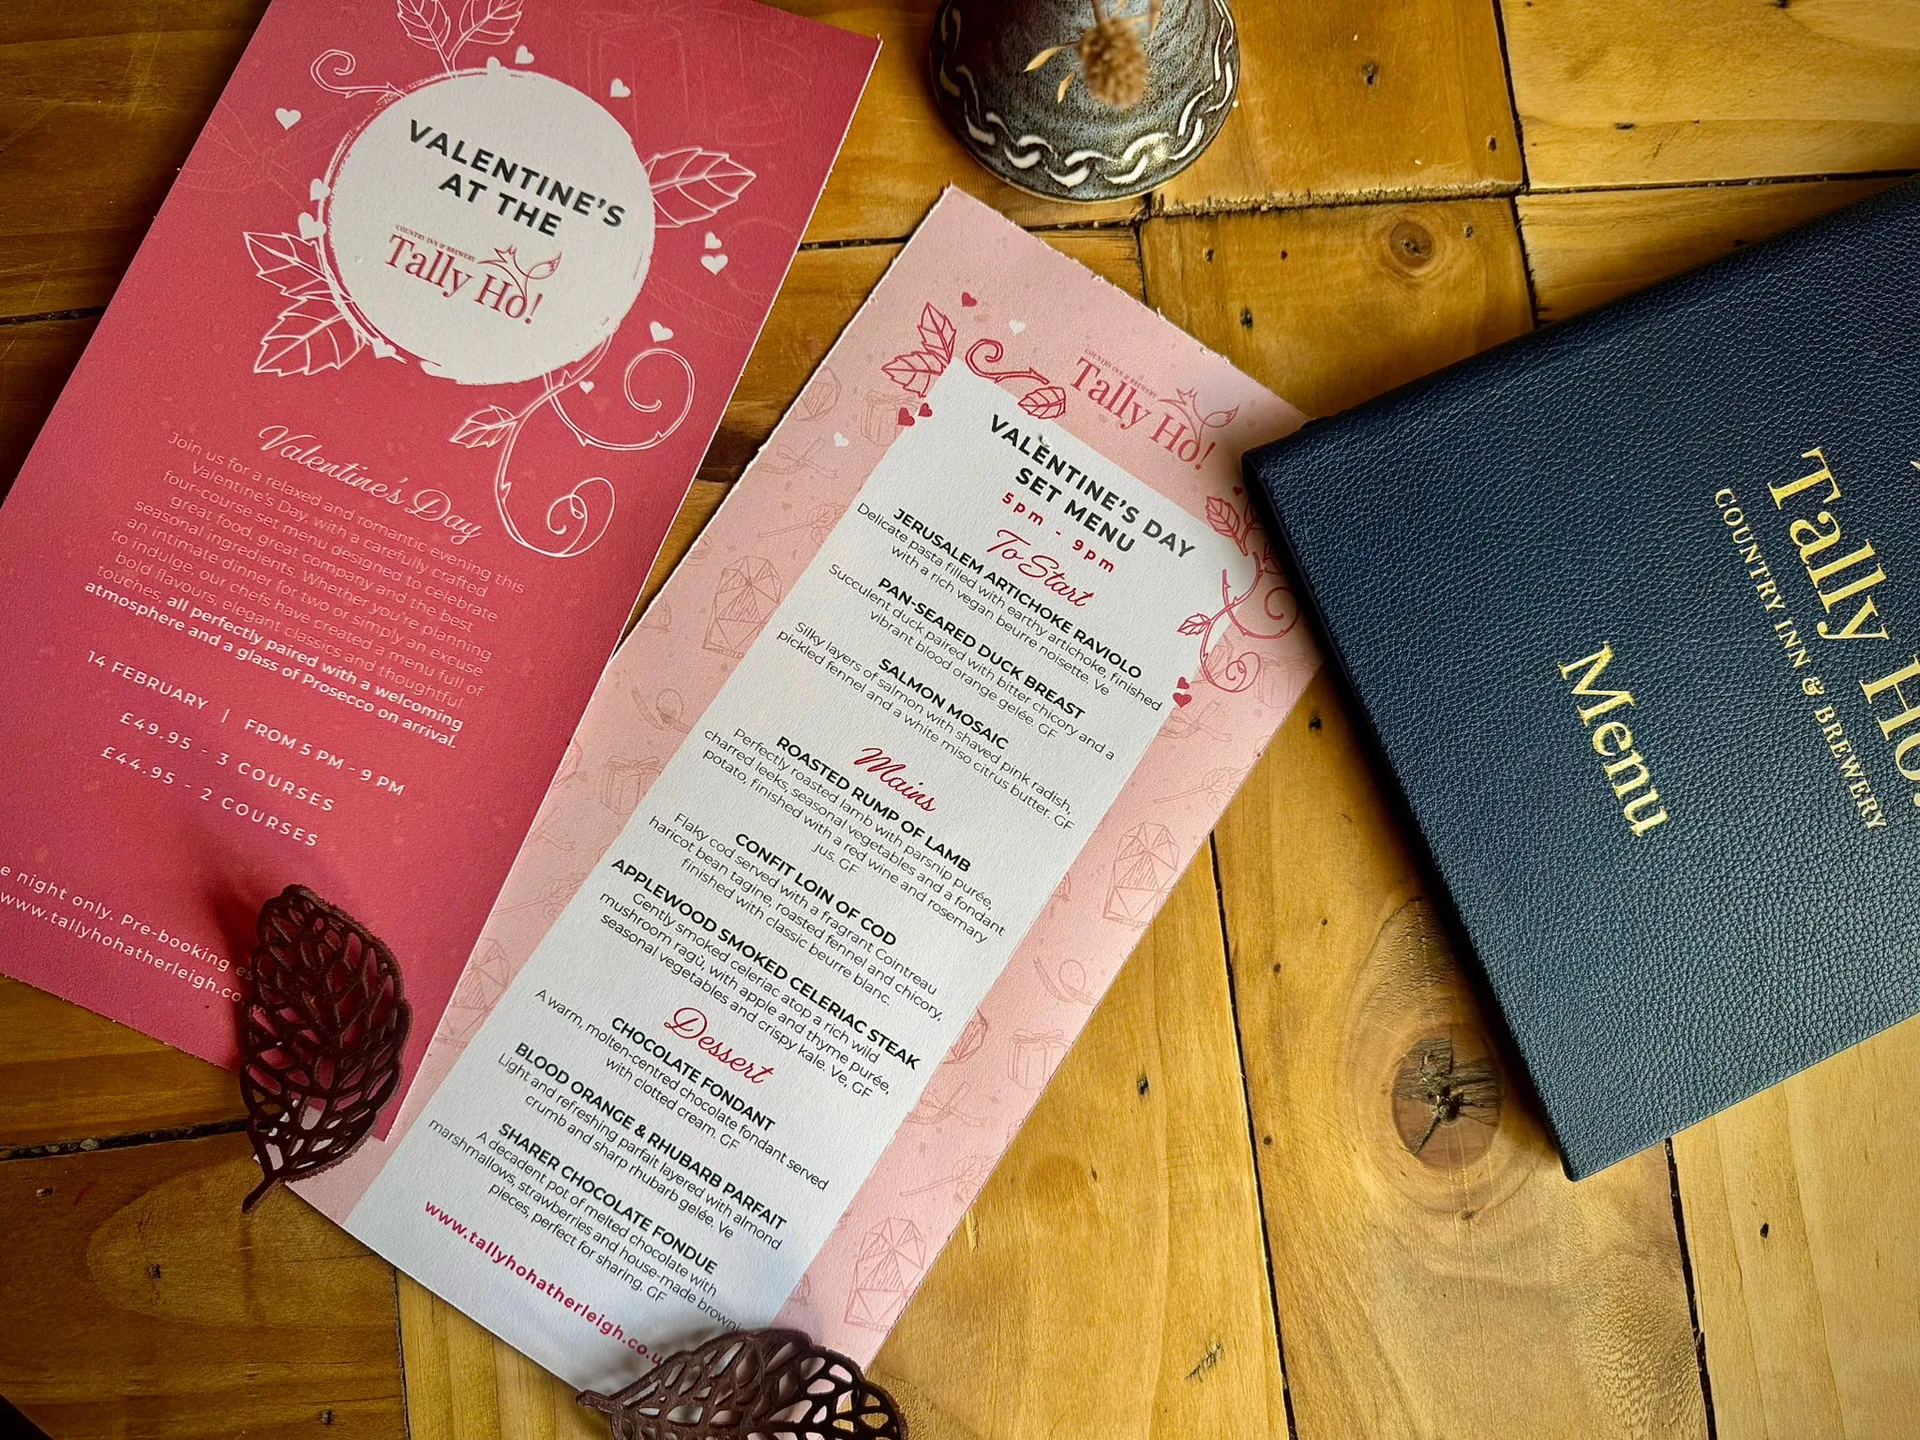 VALENTINE'S
AT THE
COUNTRY INN & BREWERY
Tally Ho!
Valentine's Day
Join us for a relaxed and romantic evening this
Valentine's Day, with a carefully crafted
four-course set menu designed to celebrate
great food, great company and the best
seasonal ingredients. Whether you're planning
an intimate dinner for two or simply an excuse
to indulge, our chefs have created a menu full of
bold flavours, elegant classics and thoughtful
touches, all perfectly paired with a welcoming
atmosphere and a glass of Prosecco on arrival.
14 FEBRUARY | FROM 5 PM - 9 PM
£49.95 - 3 COURSES
£44.95 - 2 COURSES
night only. Pre-booking
www.tallyhohatherleigh.co
COUNTRY INN & BREWERY
Tally Ho!
VALENTINE'S DAY
SET MENU
5pm - 9pm
To Start
JERUSALEM ARTICHOKE RAVIOLO
Delicate pasta filled with earthy artichoke, finished
with a rich vegan beurre noisette. Ve
PAN-SEARED DUCK BREAST
Succulent duck paired with bitter chicory and a
vibrant blood orange gelée. GF
SALMON MOSAIC
Silky layers of salmon with shaved pink radish,
pickled fennel and a white miso citrus butter. GF
Mains
ROASTED RUMP OF LAMB
Perfectly roasted lamb with parsnip purée,
charred leeks, seasonal vegetables and a fondant
potato, finished with a red wine and rosemary
jus. GF
CONFIT LOIN OF COD
Flaky cod served with a fragrant Cointreau
haricot bean tagine, roasted fennel and chicory,
finished with classic beurre blanc.
APPLEWOOD SMOKED CELERIAC STEAK
Gently smoked celeriac atop a rich wild
mushroom ragū, with apple and thyme purée,
seasonal vegetables and crispy kale. Ve, GF
Dessert
CHOCOLATE FONDANT
A warm, molten-centred chocolate fondant served
with clotted cream. GF
BLOOD ORANGE & RHUBARB PARFAIT
Light and refreshing parfait layered with almond
crumb and sharp rhubarb gelée. Ve
SHARER CHOCOLATE FONDUE
A decadent pot of melted chocolate with
marshmallows, strawberries and house-made browni
pieces, perfect for sharing. GF
www.tallyhohatherleigh.co.u
Tally Ho!
COUNTRY INN & BREWERY
Menu